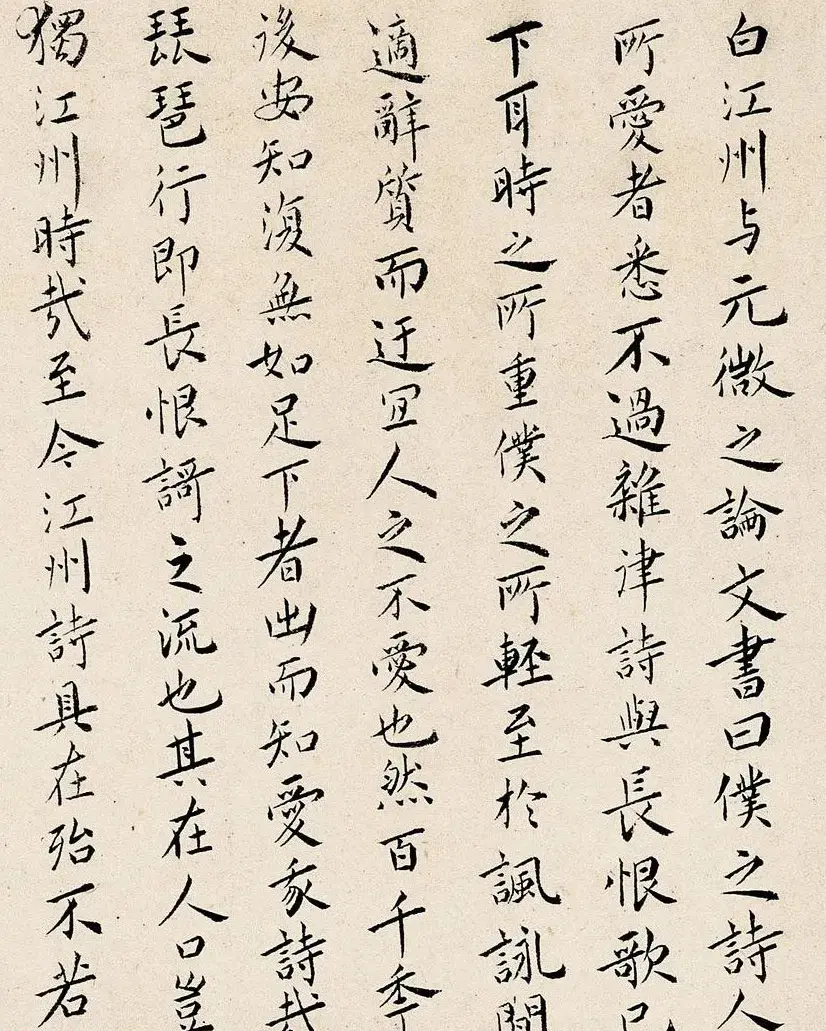 白江州与元微之論文書曰僕之詩人
所愛者悉不過雜律詩與長恨歌已
下耳時之所重僕之所輕至於諷詠閒
適辭質而迂宜人之不愛也然百千季
後安知復無如足下者出而知愛我詩哉
琵琶行即長恨謌之流也其在人口豈
獨江州時哉至今江州詩具在殆不若